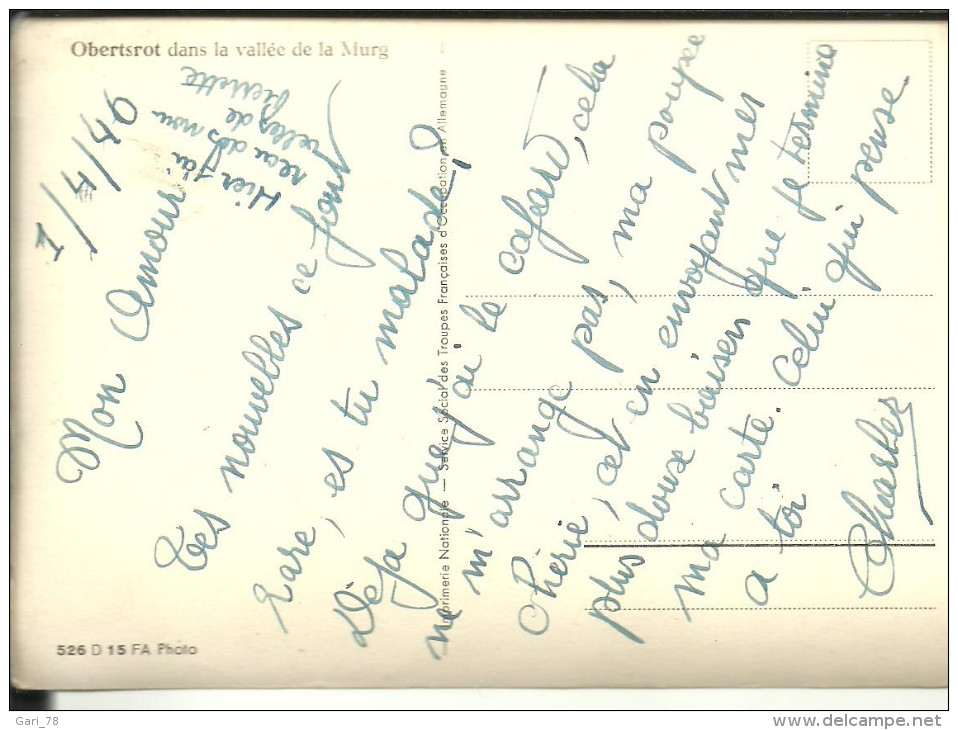 Obertsrot dans la vallée de la Murg
1/4/46
Hier j'ai
reçu des nou
velles de
Pierrette
Mon Amour
Tes nouvelles ce font
Rare, es tu malade?
Déja que j'ai le cafard, cela
ne m'arrange pas, ma poupée
Chérie, cet en envoyant mes
plus doux baisers que je termine
ma carte. celui qui pense
a toi
Charles
Imprimerie Nationale — Service Social des Troupes Françaises d'Occupation en Allemagne
526 D 15 FA Photo
Gari_78
www.delcampe.net